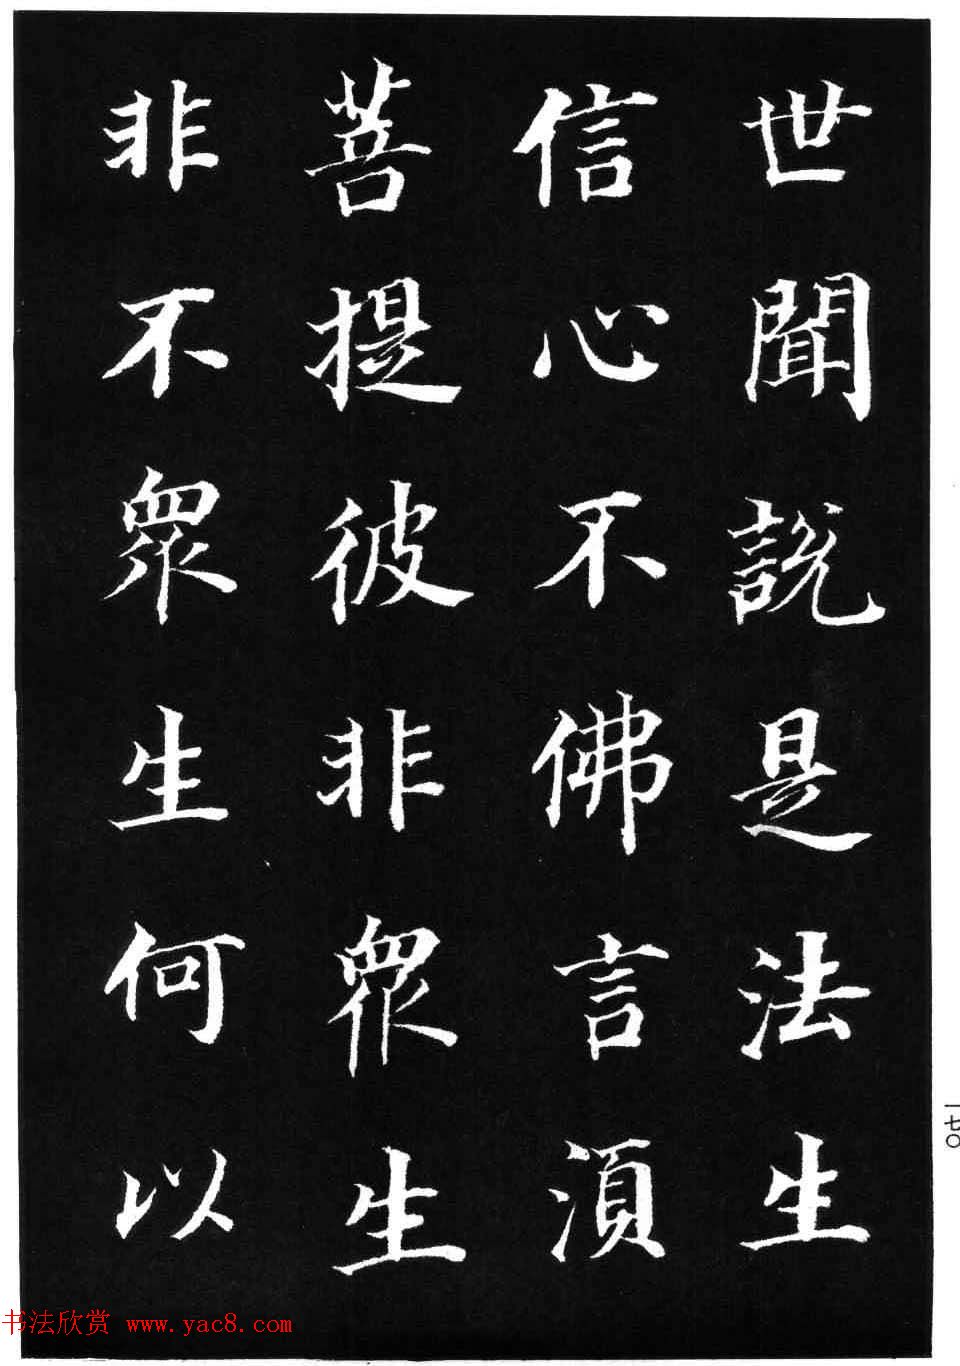 世聞說是法生
信心不佛言湏
菩提彼非衆生
非不衆生何以
一七〇
书法欣赏 www.yac8.com